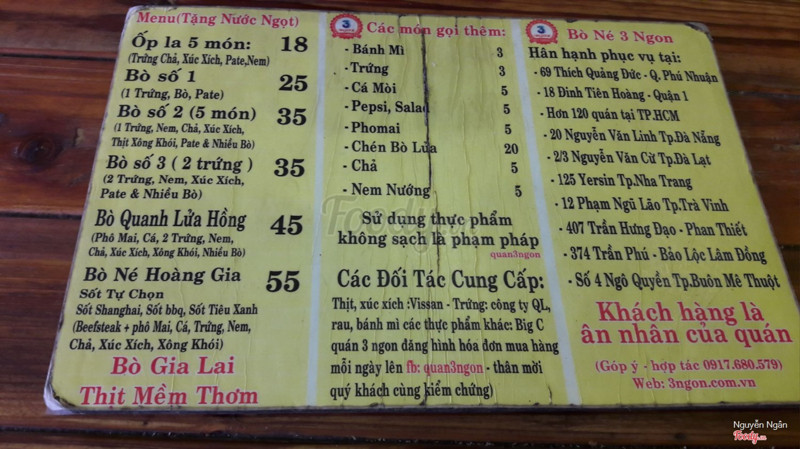 Menu(Tặng Nước Ngọt)
Ốp la 5 món: 18
(Trứng Chả, Xúc Xích, Pate,Nem)
Bò số 1 25
(1 Trứng, Bò, Pate)
Bò số 2 (5 món) 35
(1 Trứng, Nem, Chả, Xúc Xích,
Thịt Xông Khói, Pate & Nhiều Bò)
Bò số 3 ( 2 trứng ) 35
(2 Trứng, Nem, Xúc Xích,
Pate & Nhiều Bò)
Bò Quanh Lửa Hồng 45
(Phô Mai, Cá, 2 Trứng, Nem,
Chả, Xúc Xích, Xông Khói, Nhiều Bò)
Bò Né Hoàng Gia 55
Sốt Tự Chọn
Sốt Shanghai, Sốt bbq, Sốt Tiêu Xanh
(Beefsteak + phô Mai, Cá, Trứng, Nem,
Chả, Xúc Xích, Xông Khói)
Bò Gia Lai
Thịt Mềm Thơm
3
Các món gọi thêm:
- Bánh Mì 3
- Trứng 3
- Cá Mòi 5
- Pepsi, Salad 5
- Phomai 5
- Chén Bò Lửa 20
- Chả 5
- Nem Nướng 5
Sử dụng thực phẩm
không sạch là phạm pháp
quan3ngon
Các Đối Tác Cung Cấp:
Thịt, xúc xích :Vissan - Trứng: công ty QL,
rau, bánh mì các thực phẩm khác: Big C
quán 3 ngon đăng hình hóa đơn mua hàng
mỗi ngày lên fb: quan3ngon - thân mời
quý khách cùng kiểm chứng)
3
Bò Né 3 Ngon
Hân hạnh phục vụ tại:
- 69 Thích Quảng Đức - Q. Phú Nhuận
- 18 Đinh Tiên Hoàng - Quận 1
- Hơn 120 quán tại TP.HCM
- 20 Nguyễn Văn Linh Tp.Đà Nẵng
- 2/3 Nguyễn Văn Cừ Tp.Đà Lạt
- 125 Yersin Tp.Nha Trang
- 12 Phạm Ngũ Lão Tp.Trà Vinh
- 407 Trần Hưng Đạo - Phan Thiết
- 374 Trần Phú - Bảo Lộc Lâm Đồng
- Số 4 Ngô Quyền Tp.Buôn Mê Thuột
Khách hàng là
ân nhân của quán
(Góp ý - hợp tác 0917.680.579)
Web: 3ngon.com.vn
Foody.vn
Nguyễn Ngân
Foody.vn